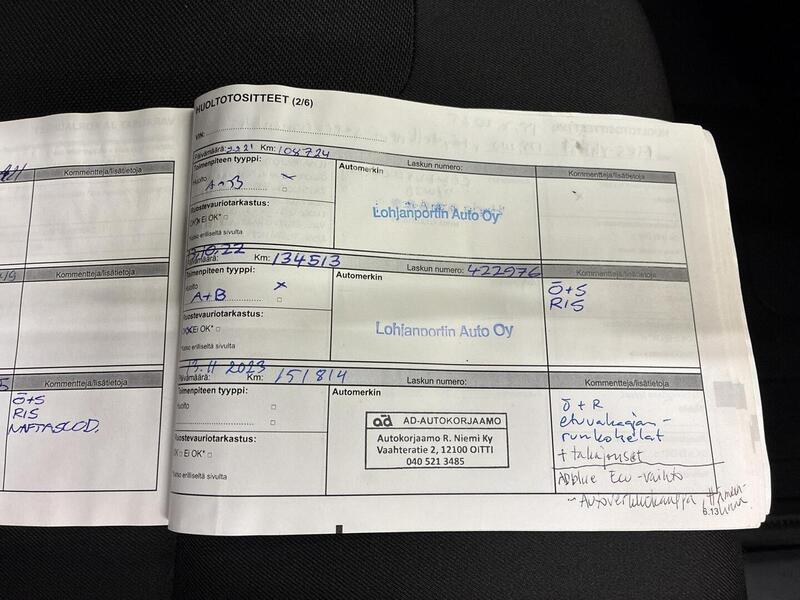 Kommentteja/lisätietoja
Kommentteja/lisätietoja
Kommentteja/lisätietoja
Ö+S
RIS
NAFTASUOD.
HUOLTOTOSITTEET (2/6)
VIN:
Päivämäärä: Km: 108724 Laskun numero: Kommentteja/lisätietoja
Toimenpiteen tyyppi: Automerkin
Huolto x
A+B
Lohjanportin Auto Oy
Ruostevauriotarkastus:
OK Ei OK*
Katso erilliseltä sivulta
Päivämäärä: .10.22 Km: 134513 Laskun numero: 422976 Kommentteja/lisätietoja
Toimenpiteen tyyppi: Automerkin
Huolto x
A+B
Ö+S
RIS
Lohjanportin Auto Oy
Ruostevauriotarkastus:
OK Ei OK*
Katso erilliseltä sivulta
Päivämäärä: 11 2023 Km: 151814 Laskun numero: Kommentteja/lisätietoja
Toimenpiteen tyyppi: Automerkin
Huolto
Ruostevauriotarkastus:
OK Ei OK*
Katso erilliseltä sivulta
ad AD-AUTOKORJAAMO
Autokorjaamo R. Niemi Ky
Vaahteratie 2, 12100 OITTI
040 521 3485
Ö + R
etuvakaajan-
runkohelat
+ takajouset
Adblue Ecu-vaihto
6.13